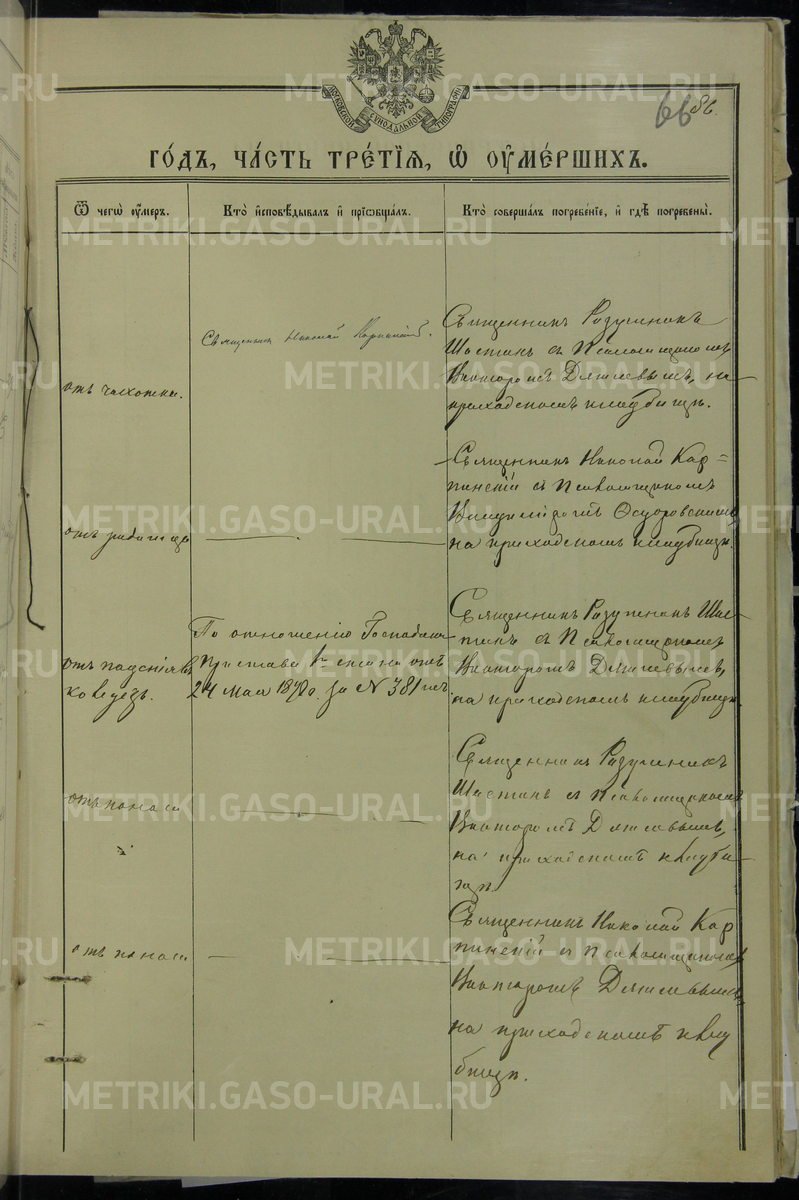 МОСКОВСКОЙ СѴНОДАЛЬНОЙ ТИПОГРАФІИ
66
86.
ГО́ДЪ, ЧА́СТЬ ТРЕ́ТІѦ, Ѡ҆ ОУ҆МЕ́РШИХЪ.
Ѿ чегѡ̀ оу҆́меръ.
Кто̀ и҆сповѣ́дывалъ и҆ прїѡбща́лъ.
Кто̀ соверша́лъ погребе́нїе, и҆ гдѣ̀ погребены̀.
отъ чахотки.
Священникъ Николай Карпинскій.
Священникъ Разумникъ
Шастинъ съ Псаломщикомъ
Викторомъ Дягилевымъ, на
приходскомъ кладбищѣ.
отъ родимца
Священникъ Николай Кар=
пинскій съ Псаломщикомъ
Владиміромъ
на приходскомъ кладбищѣ.
отъ паденія въ
колодезь.
По отношенію Господина
Пристава 1го стана отъ
24 мая за № 381мъ
Священникъ Разумникъ Шас-
тинъ съ Псаломщикомъ
Викторомъ Дягилевымъ,
на приходскомъ кладбищѣ.
отъ поноса
Священникъ Разумникъ
Шастинъ съ Псаломщикомъ
Викторомъ Дягилевымъ,
на приходскомъ кладби-
щѣ.
отъ поноса
Священникъ Николай Кар
пинскій съ Псаломщикомъ
Викторомъ Дягилевымъ,
на приходскомъ клад
бищѣ.
METRIKI.GASO-URAL.RU